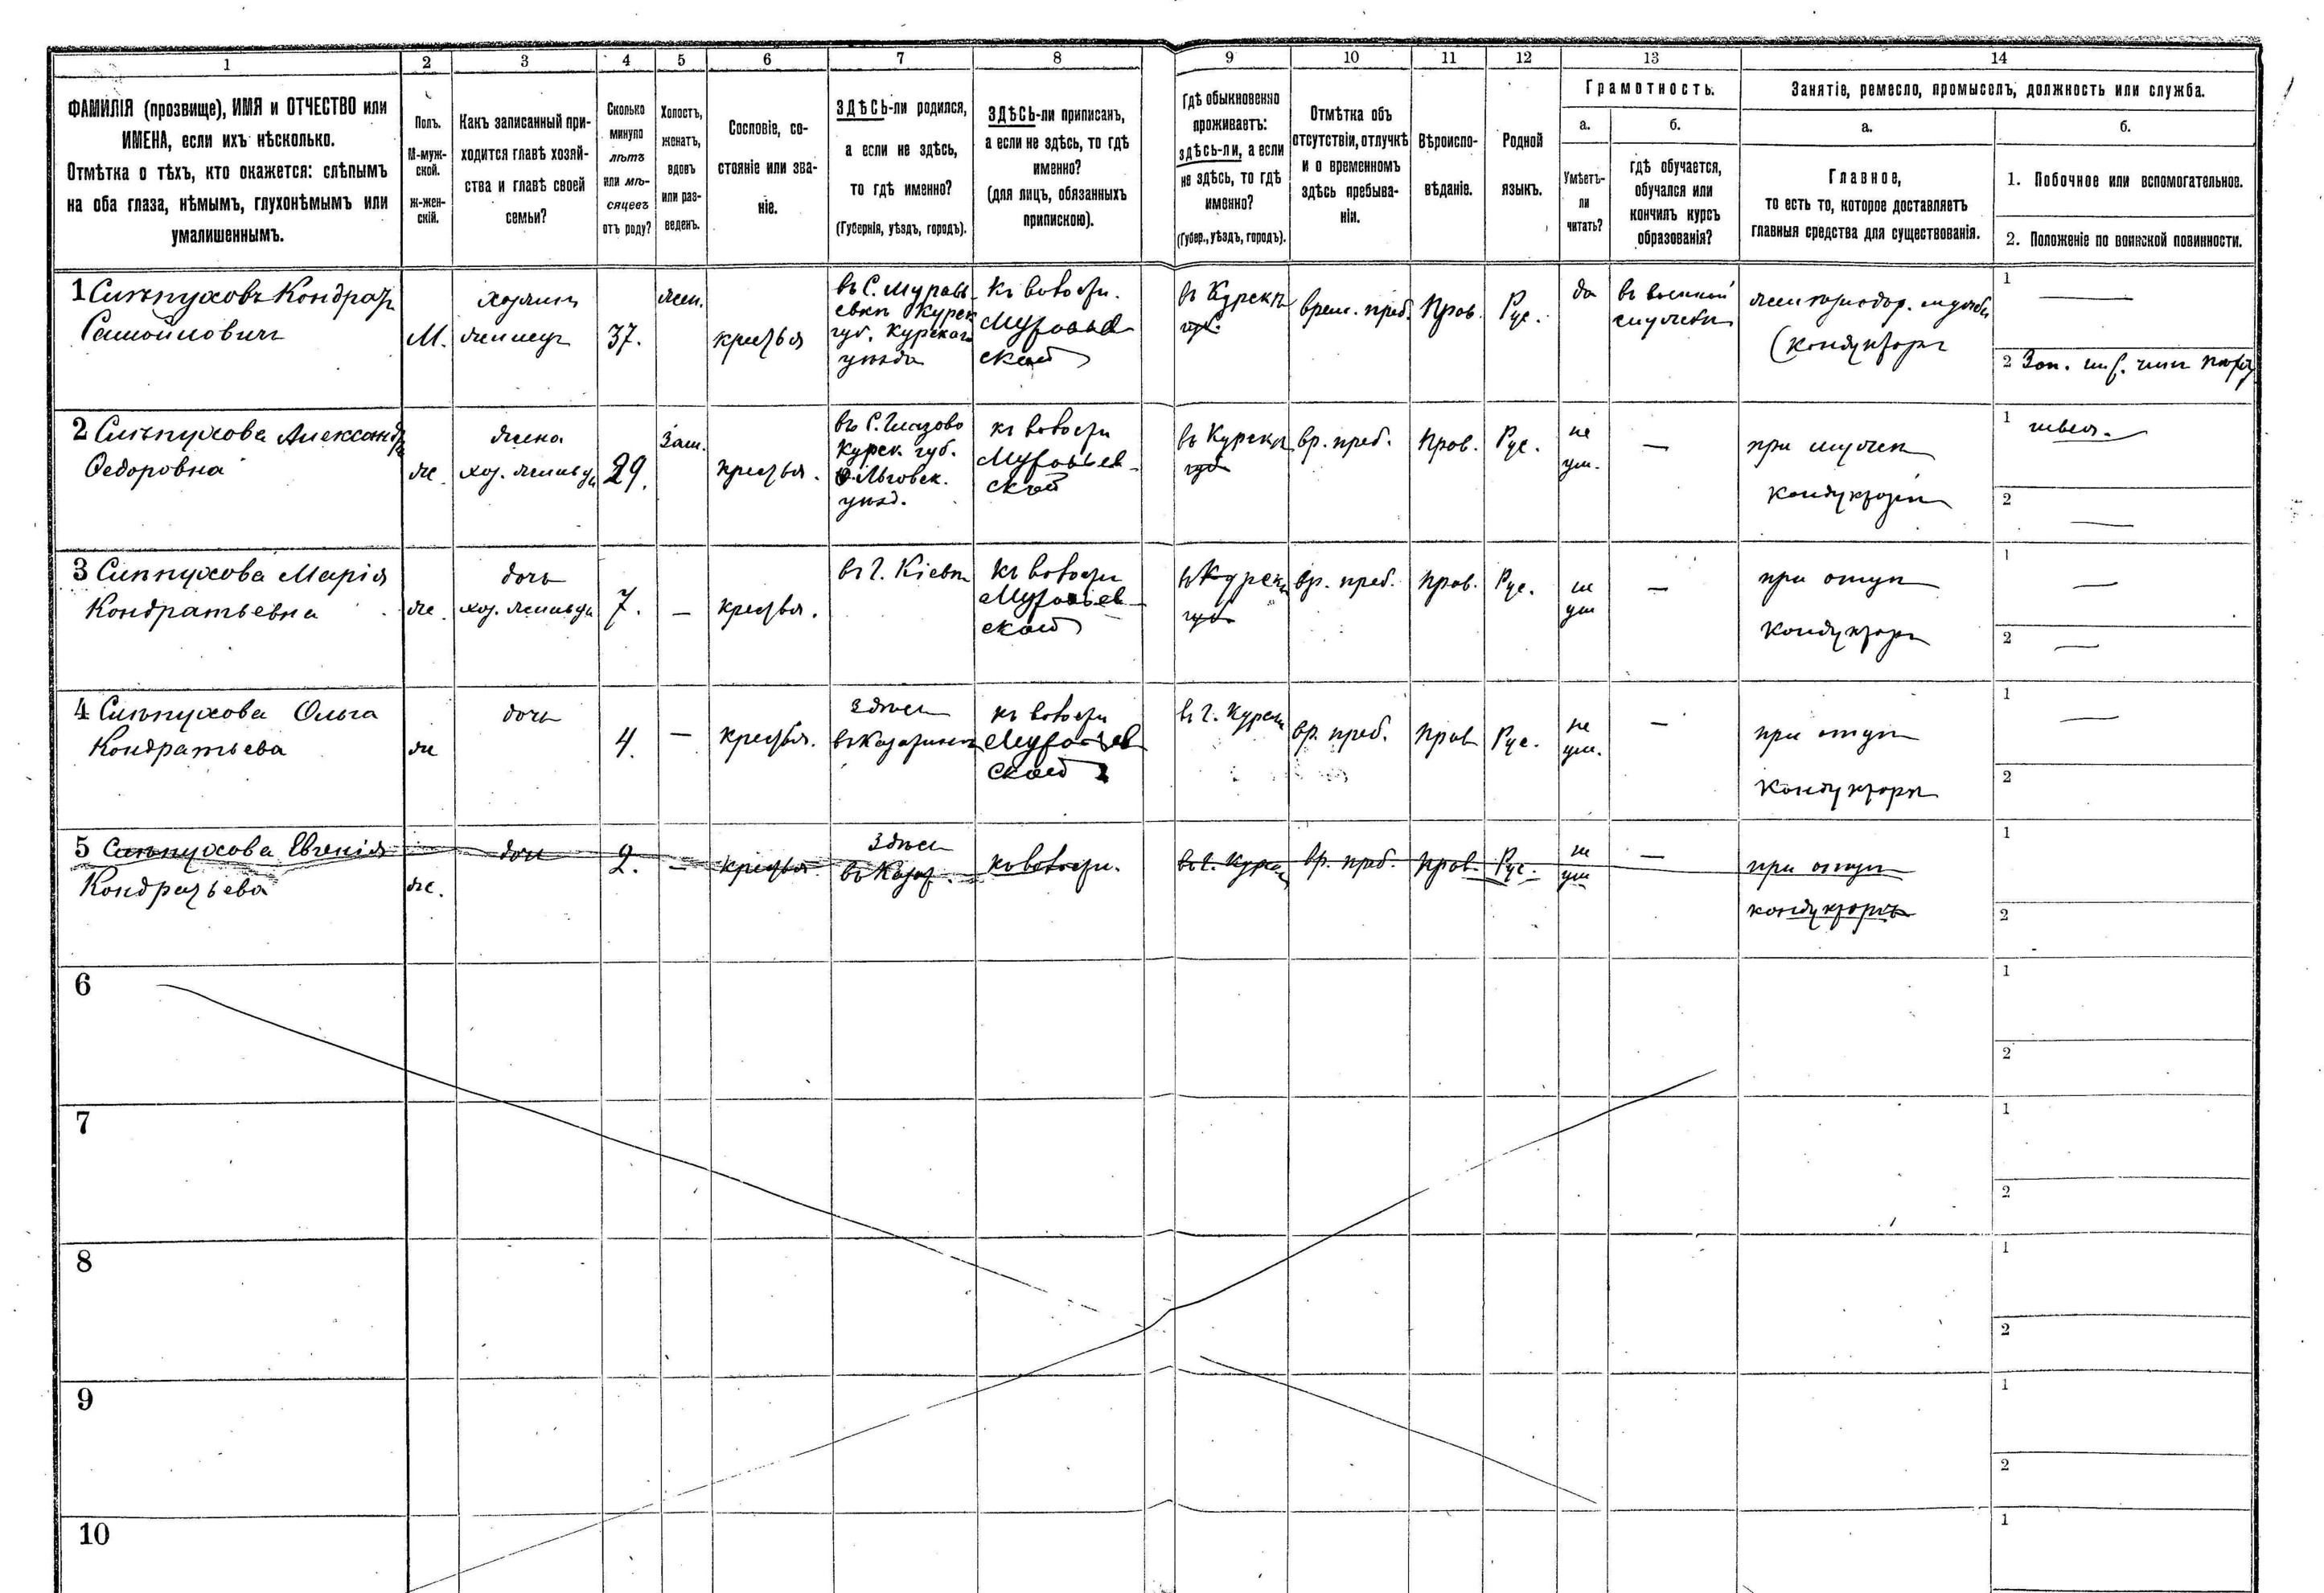 1
2
3
4
5
6
7
8
9
10
11
12
13
14
ФАМИЛІЯ (прозвище), ИМЯ и ОТЧЕСТВО или
ИМЕНА, если ихъ нѣсколько.
Отмѣтка о тѣхъ, кто окажется: слѣпымъ
на оба глаза, нѣмымъ, глухонѣмымъ или
умалишеннымъ.
Полъ.
М-муж-
ской.
Ж-жен-
скій.
Какъ записанный при-
ходится главѣ хозяй-
ства и главѣ своей
семьи?
Сколько
минуло
лѣтъ
или мѣ-
сяцевъ
отъ роду?
Холостъ,
женатъ,
вдовъ
или раз-
веденъ.
Сословіе, со-
стояніе или зва-
ніе.
ЗДѢСЬ-ли родился,
а если не здѣсь,
то гдѣ именно?
(Губернія, уѣздъ, городъ).
ЗДѢСЬ-ли приписанъ,
а если не здѣсь, то гдѣ
именно?
(для лицъ, обязанныхъ
припискою).
Гдѣ обыкновенно
проживаетъ:
здѣсь-ли, а если
не здѣсь, то гдѣ
именно?
(Губер., уѣздъ, городъ).
Отмѣтка объ
отсутствіи, отлучкѣ
и о временномъ
здѣсь пребыва-
ніи.
Вѣроиспо-
вѣданіе.
Родной
языкъ.
Грамотность.
а.
Умѣетъ-
ли
читать?
б.
гдѣ обучается,
обучался или
кончилъ курсъ
образованія?
Занятіе, ремесло, промыселъ, должность или служба.
а.
Главное,
то есть то, которое доставляетъ
главныя средства для существованія.
б.
1. Побочное или вспомогательное.
2. Положеніе по воинской повинности.
1 Сиѣпуховъ Кондратъ
Самойловичъ
М.
хозяинъ
37.
жен.
крестья
въ С. Муравь
евкѣ Курск
губ. Курскаго
уѣзда
къ волости.
Муравьев
ской
въ Курскѣ
губ.
врем. преб.
Прав.
Рус.
да
въ военной
службѣ
(кондукторъ
1
2 Зап.
2 Сиѣпухова Александра
Федоровна
же.
жена
хоз.
29.
Зам.
крестья.
въ С. Глазово
Курск. губ.
Льговск.
уѣзд.
къ волости
Муравьев
ской
въ Курскѣ
губ
вр. преб.
Прав.
Рус.
не
ум.
—
при мужѣ
кондукторѣ
1 швея.
2
3 Сиѣпухова Марія
Кондратьевна
же.
дочь
хоз.
7.
—
крестья.
въ г. Кіевѣ
къ волости
Муравьев
ской
въ Курскѣ
губ
вр. преб.
Прав.
Рус.
не
ум
—
при отцѣ
кондукторѣ
1 —
2 —
4 Сиѣпухова Ольга
Кондратьева
же
дочь
4.
—
крестья.
здѣсь
къ волости
Муравьев
ской
въ г. Курскѣ
вр. преб.
Прав
Рус.
не
ум.
—
при отцѣ
кондукторѣ
1 —
2
5 Сиѣпухова Евгенія
Кондратьева
же.
дочь
2.
—
крестья
здѣсь
къ волости.
въ г. Курскѣ
вр. преб.
Прав.
Рус.
не
ум
—
при отцѣ
кондукторѣ
1
2
6
1
2
7
1
2
8
1
2
9
1
2
10
1